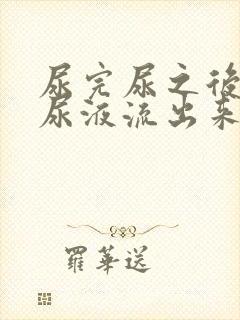 尿完尿之後
尿液流出来
羅華送